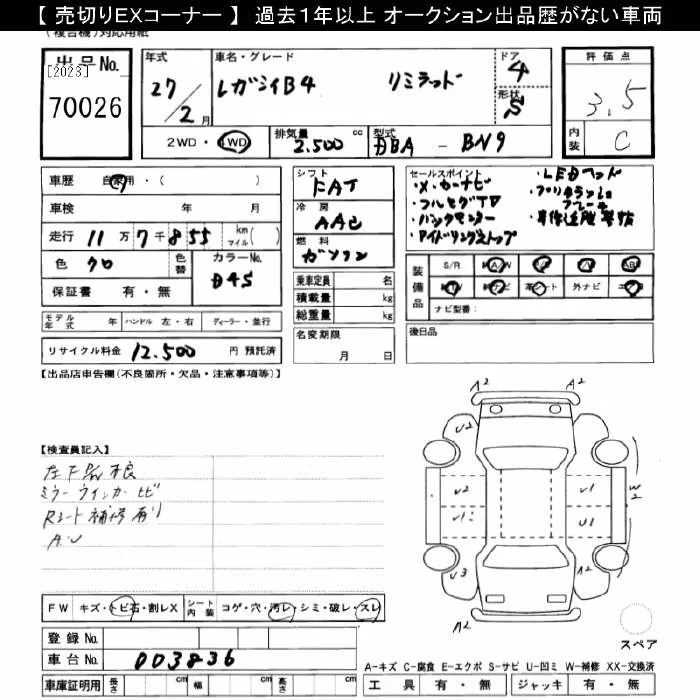 【 売切りEXコーナー 】 過去1年以上 オークション出品歴がない車両
(複合機)対応用紙
出品No.
[2023]
70026
年式
27/2月
車名・グレード
レガシィB4 リミテッド
ドア
4
形状
S
評価点
3.5
内装
C
2WD・4WD
排気量
2.500 cc
型式
DBA - BN9
車歴 自家用・( )
車検 年 月
走行 11万7千855 km マイル( )
色 クロ
色替
カラーNo.
D4S
保証書 有・無
モデル年式 年
ハンドル 左・右
ディーラー・並行
リサイクル料金 12.500 円 預託済
シフト
FAT
冷房
AAC
燃料
ガソリン
乗車定員 名
積載量 kg
総重量 kg
名変期限
月 日
セールスポイント
・メ・カーナビ
・フルセグTV
・バックモニター
・アイドリングストップ
・LEDヘッド
・プリクラッシュブレーキ
装備品
S/R
外ナビ
ナビ型番:
後日品
【出品店申告欄(不良箇所・欠品・注意事項等)】
【検査員記入】
ミラーウインカーヒビ
Rシート補修有り
A.U
A2 A2
U2
U2 U1
U1 U1
W2
U3 A2
A2
スペア
FW キズ・トビ石・割レX
シート内装 コゲ・穴・汚レ・シミ・破レ・スレ
登録No.
車台No. 003836
車庫証明用 長さ cm 幅 cm 高さ cm
A-キズ C-腐食 E-エクボ S-サビ U-凹ミ W-補修 XX-交換済
工具 有・無 ジャッキ 有・無